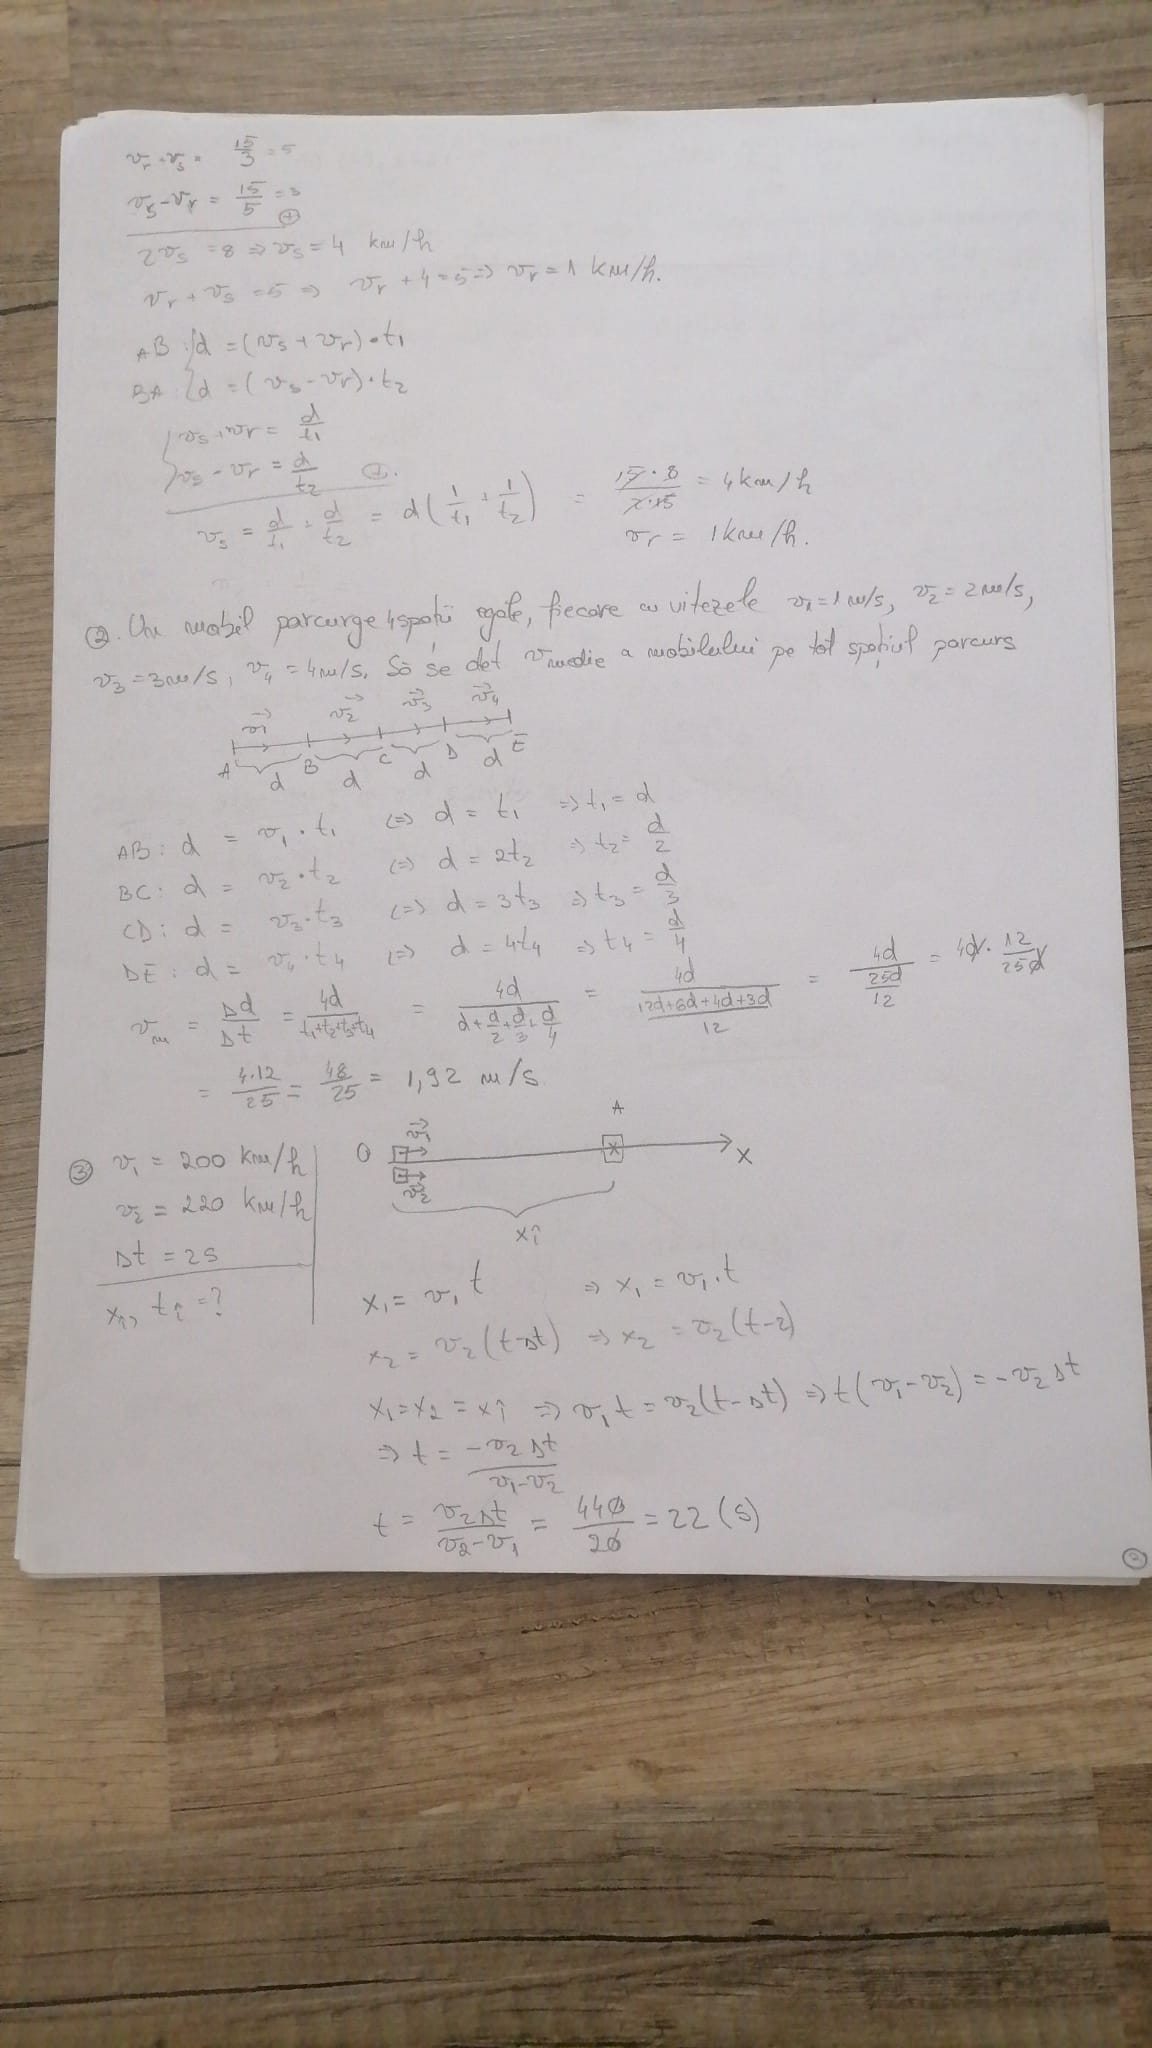 vr + vs = 15/3 = 5
vs - vr = 15/5 = 3
⊕
2vs = 8 => vs = 4 km/h
vr + vs = 5 => vr + 4 = 5 => vr = 1 km/h.
AB: { d = (vs + vr) • t1
BA: { d = (vs - vr) • t2
{ vs + vr = d/t1
{ vs - vr = d/t2 ⊕.
vs = d/t1 + d/t2 = d(1/t1 + 1/t2) = 15·8/2·15 = 4 km/h
vr = 1 km/h.
②. Un mobil parcurge 4 spații egale, fiecare cu vitezele v1 = 1 m/s, v2 = 2 m/s,
v3 = 3 m/s, v4 = 4 m/s. Să se det vmedie a mobilului pe tot spațiul parcurs
v1 v2 v3 v4
A B C D E
d d d d
AB: d = v1 • t1 <=> d = t1 => t1 = d
BC: d = v2 • t2 <=> d = 2t2 => t2 = d/2
CD: d = v3 • t3 <=> d = 3t3 => t3 = d/3
DE: d = v4 • t4 <=> d = 4t4 => t4 = d/4
vm = Δd/Δt = 4d/(t1+t2+t3+t4) = 4d/(d + d/2 + d/3 + d/4) = 4d/((12d+6d+4d+3d)/12) = 4d/(25d/12) = 4d · 12/25d
= 4·12/25 = 48/25 = 1,92 m/s
③ v1 = 200 km/h
v2 = 220 km/h
Δt = 2s
xî, tî = ?
O v1 v2 A x
xî
x1 = v1 t => x1 = v1 · t
x2 = v2 (t-Δt) => x2 = v2 (t-2)
x1 = x2 = xî => v1 t = v2 (t-Δt) => t (v1 - v2) = - v2 Δt
=> t = - v2 Δt / v1 - v2
t = v2 Δt / v2 - v1 = 440/20 = 22 (s)
②